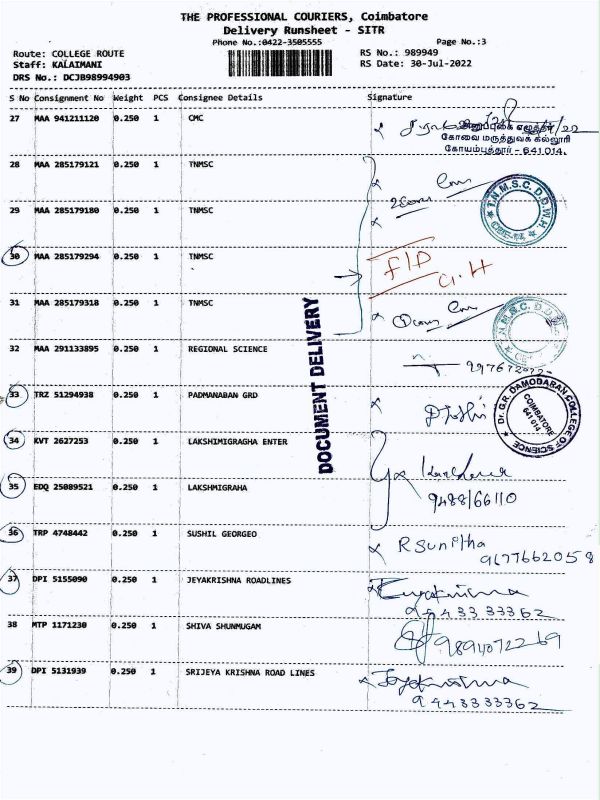 THE PROFESSIONAL COURIERS, Coimbatore
Delivery Runsheet - SITR
Phone No.:0422-3505555 Page No.:3
Route: COLLEGE ROUTE RS No.: 989949
Staff: KALAIMANI RS Date: 30-Jul-2022
DRS No.: DCJB98994903
S No Consignment No Weight PCS Consignee Details Signature
27 MAA 941211120 0.250 1 CMC
கோவை மருத்துவக் கல்லூரி
கோயம்புத்தூர் - 641 014.
28 MAA 285179121 0.250 1 TNMSC
T.N.M.S.C. D.D.W.H
29 MAA 285179180 0.250 1 TNMSC
30 MAA 285179294 0.250 1 TNMSC
F/D
G.H
31 MAA 285179318 0.250 1 TNMSC
DOCUMENT DELIVERY
32 MAA 291133895 0.250 1 REGIONAL SCIENCE
33 TRZ 51294938 0.250 1 PADMANABAN GRD
Dr. G.R. DAMODARAN COLLEGE OF SCIENCE
COIMBATORE
641 014
34 KVT 2627253 0.250 1 LAKSHIMIGRAGHA ENTER
35 EDQ 25089521 0.250 1 LAKSHMIGRAHA
9488166110
36 TRP 4748442 0.250 1 SUSHIL GEORGEO R Sunitha
9677662058
37 DPI 5155090 0.250 1 JEYAKRISHNA ROADLINES
9443333362
38 MTP 1171230 0.250 1 SHIVA SHUNMUGAM 9894072269
39 DPI 5131939 0.250 1 SRIJEYA KRISHNA ROAD LINES
9443333362